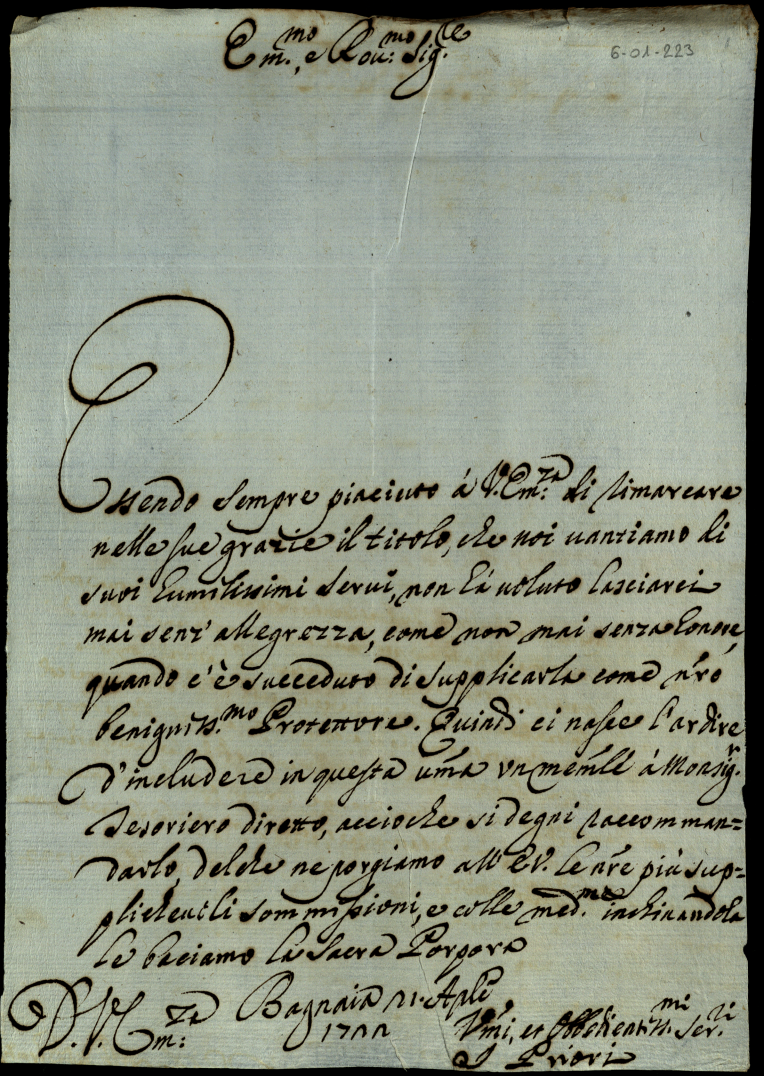 Em.mo, e Rev:mo Sig.re
6-01-223
Essendo sempre piaciuto á V. Em:za di rimarcare
nelle sue grazie il titolo, che noi vantiamo di
suoi humilissimi servi, non há voluto lasciarci
mai senz' allegrezza, come non mai senza honore,
quando c'è succeduto di supplicarla come n'ro
benigniss.mo Protettore. Quindi ci nasce l'ardire
d'includere in questa um̃a un mem̃le á Monsig.r
Tesoriero diretto, accioche si degni raccomman=
darlo, delche ne porgiamo all' E.V. le n're più sup=
plichevoli sommissioni, e colle med.me inchinandola
le baciamo la Sacra Porpora
D. V. Em:za
Bagnaia 21. Aple
1722
Vmi, et Obbedientiss.mi Ser.ri
I Priori